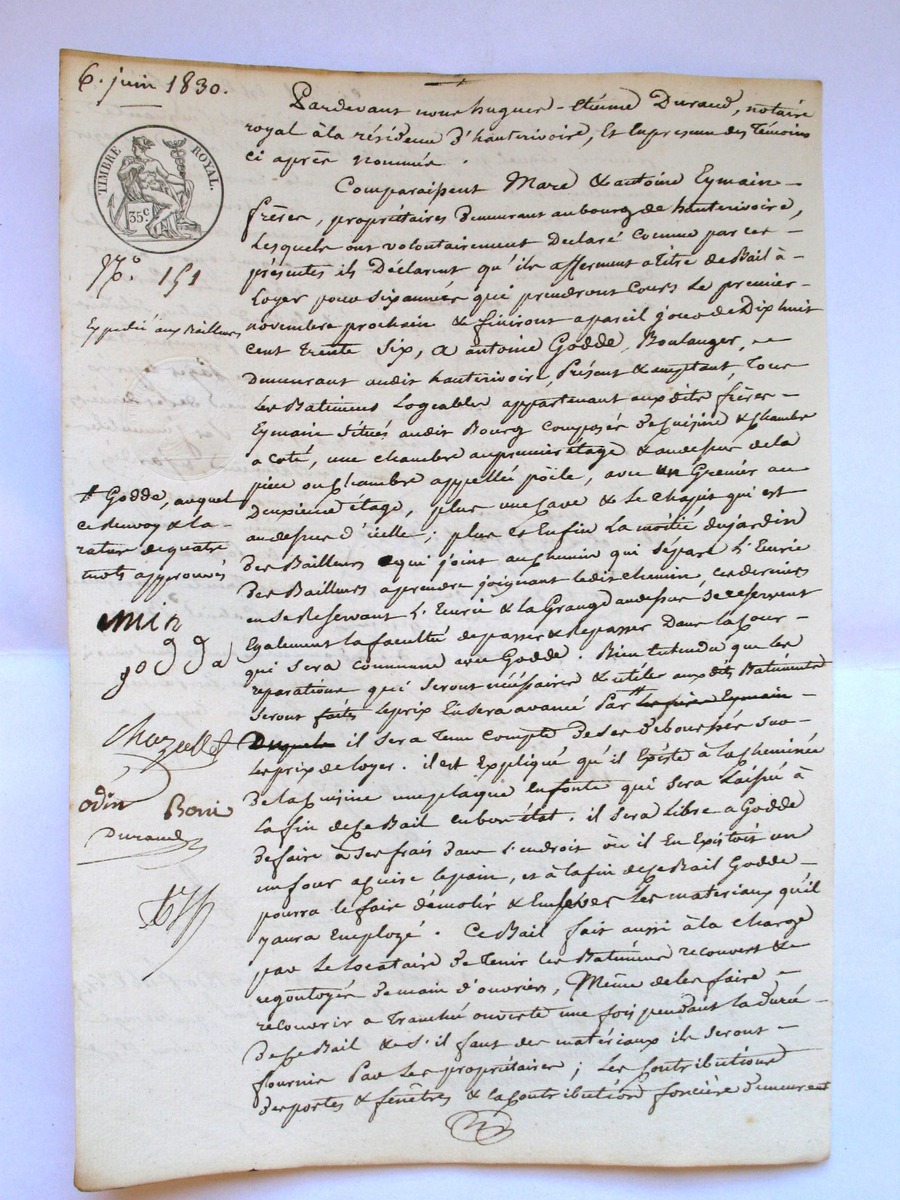 6. juin 1830.
TIMBRE ROYAL.
35 c
N.º 151
Expedié aux Bailleurs
Pardevant nous hugues-Etienne Durand, notaire
royal à la résidence d'hauterivoire, Et En presence des Témoins
ci après nommés.
Comparaissent Marc & antoine Eymain
frères, propriétaires demeurant au bourg de hauterivoire,
Lesquels ont volontairement Declaré Comme par ces
présentes ils Déclarent qu'ils afferment a titre de Bail à
Loyer pour six années qui prendront Cours Le premier
novembre prochain & finiront a pareil jour de Dix huit
cent trente Six, a antoine Godde, Boulanger,
demeurant audit hauterivoire, Présent & acceptant, Tous
Les Batimens Logeables appartenant auxdits frères
Eymain Situés audit Bourg Composés de Cuisine & Chambre
a coté, une chambre au premier étage & au dessus de la
pièce ou Chambre appellée poële, avec un Grenier au
Deuxième étage, plus une Cave & Le Chapit qui est
au dessus d'icelle; plus et Enfin La moitié du jardin
des Bailleurs qui joint au Chemin qui sépare L'Eurie
des Bailleurs a prendre joignant ledit chemin, ces derniers
en se Reservant L'Eurie & la Grange au dessus, se reservent
Egalement La faculté de passer & Repasser Dans la Cour
qui Sera commune avec Godde. Bien entendu que les
reparations qui seront nécéssaires & utiles auxdits Batiments
seront faites Le prix En sera avancé Par Les frères Eymain
Duquels il sera Tenu Compte de ses débourssés sur
Le prix de loyer. il est Expliqué qu'il Existe à la Cheminée
de la Cuisine une plaque en fonte qui sera Laissée à
La fin de ce Bail en bon état. il sera Libre a Godde
de faire à ses frais dans L'endroit où il En Existoit un
un four a cuire le pain, et à la fin de ce Bail Godde
pourra le faire démolir & Enlever Les materiaux qu'il
y aura Employé. Ce Bail fait aussi à la charge
par Le locataire de Tenir Les Batimens recouvert &
regoutoyés de main d'ouvriers, Même de les faire
récouvrir a Tranchée ouverte une fois pendant la durée
de ce Bail & s'il faut des matériaux ils seront
fournis Par Les propriétaires; Les Contributions
des portes & fenêtres & la Contribution foncière demeurent
Godde, auquel
ce renvoy & la
rature de quatre
mots approuvés
emin
godda
Chazelle
odin
Boni
Durand